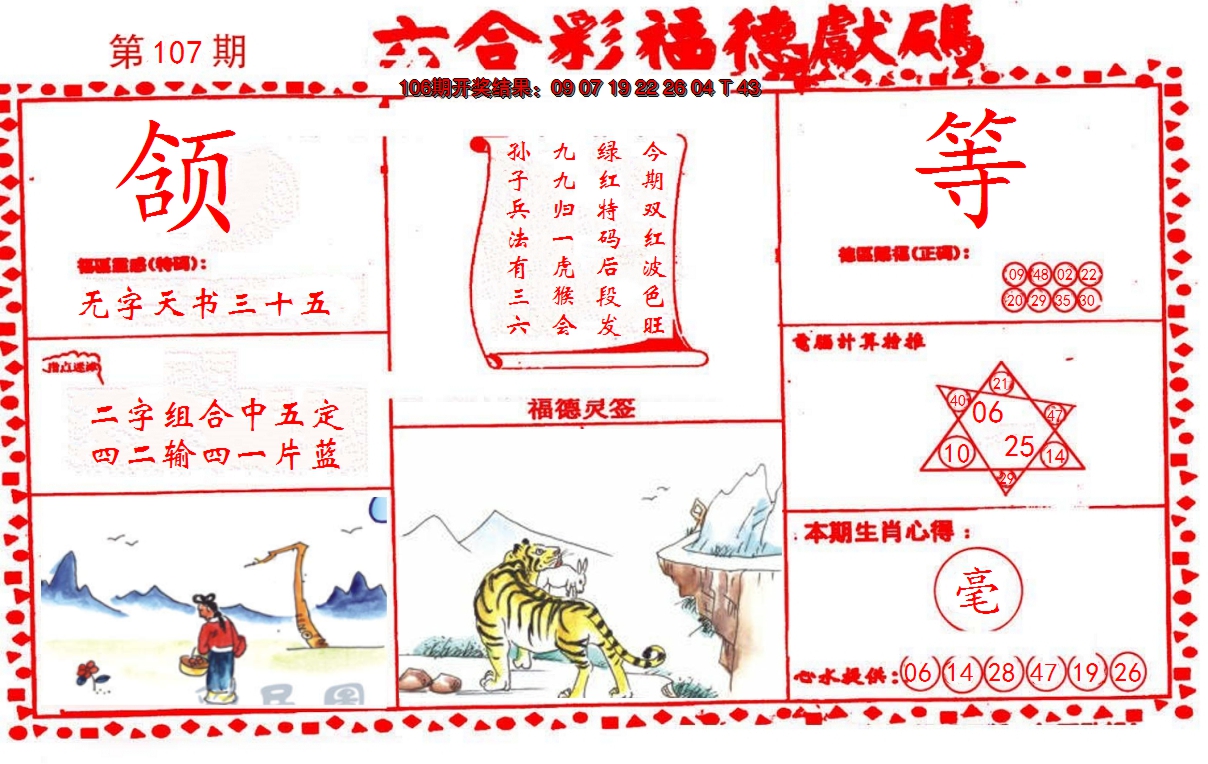 第107期
六合彩福德獻碼
106期开奖结果：09 07 19 22 26 04 T 43
颌
福區靈感(特碼)：
无字天书三十五
指点迷津
二字组合中五定
四二输四一片蓝
今期双红波色旺
绿红特码后段发
九九归一虎猴会
孙子兵法有三六
福德灵签
等
德區賜福(正碼)：
09 48 02 22
20 29 35 30
電腦计算抢推
21
40 06 47
10 25 14
29
本期生肖心得：
毫
心水提供：06 14 28 47 19 26